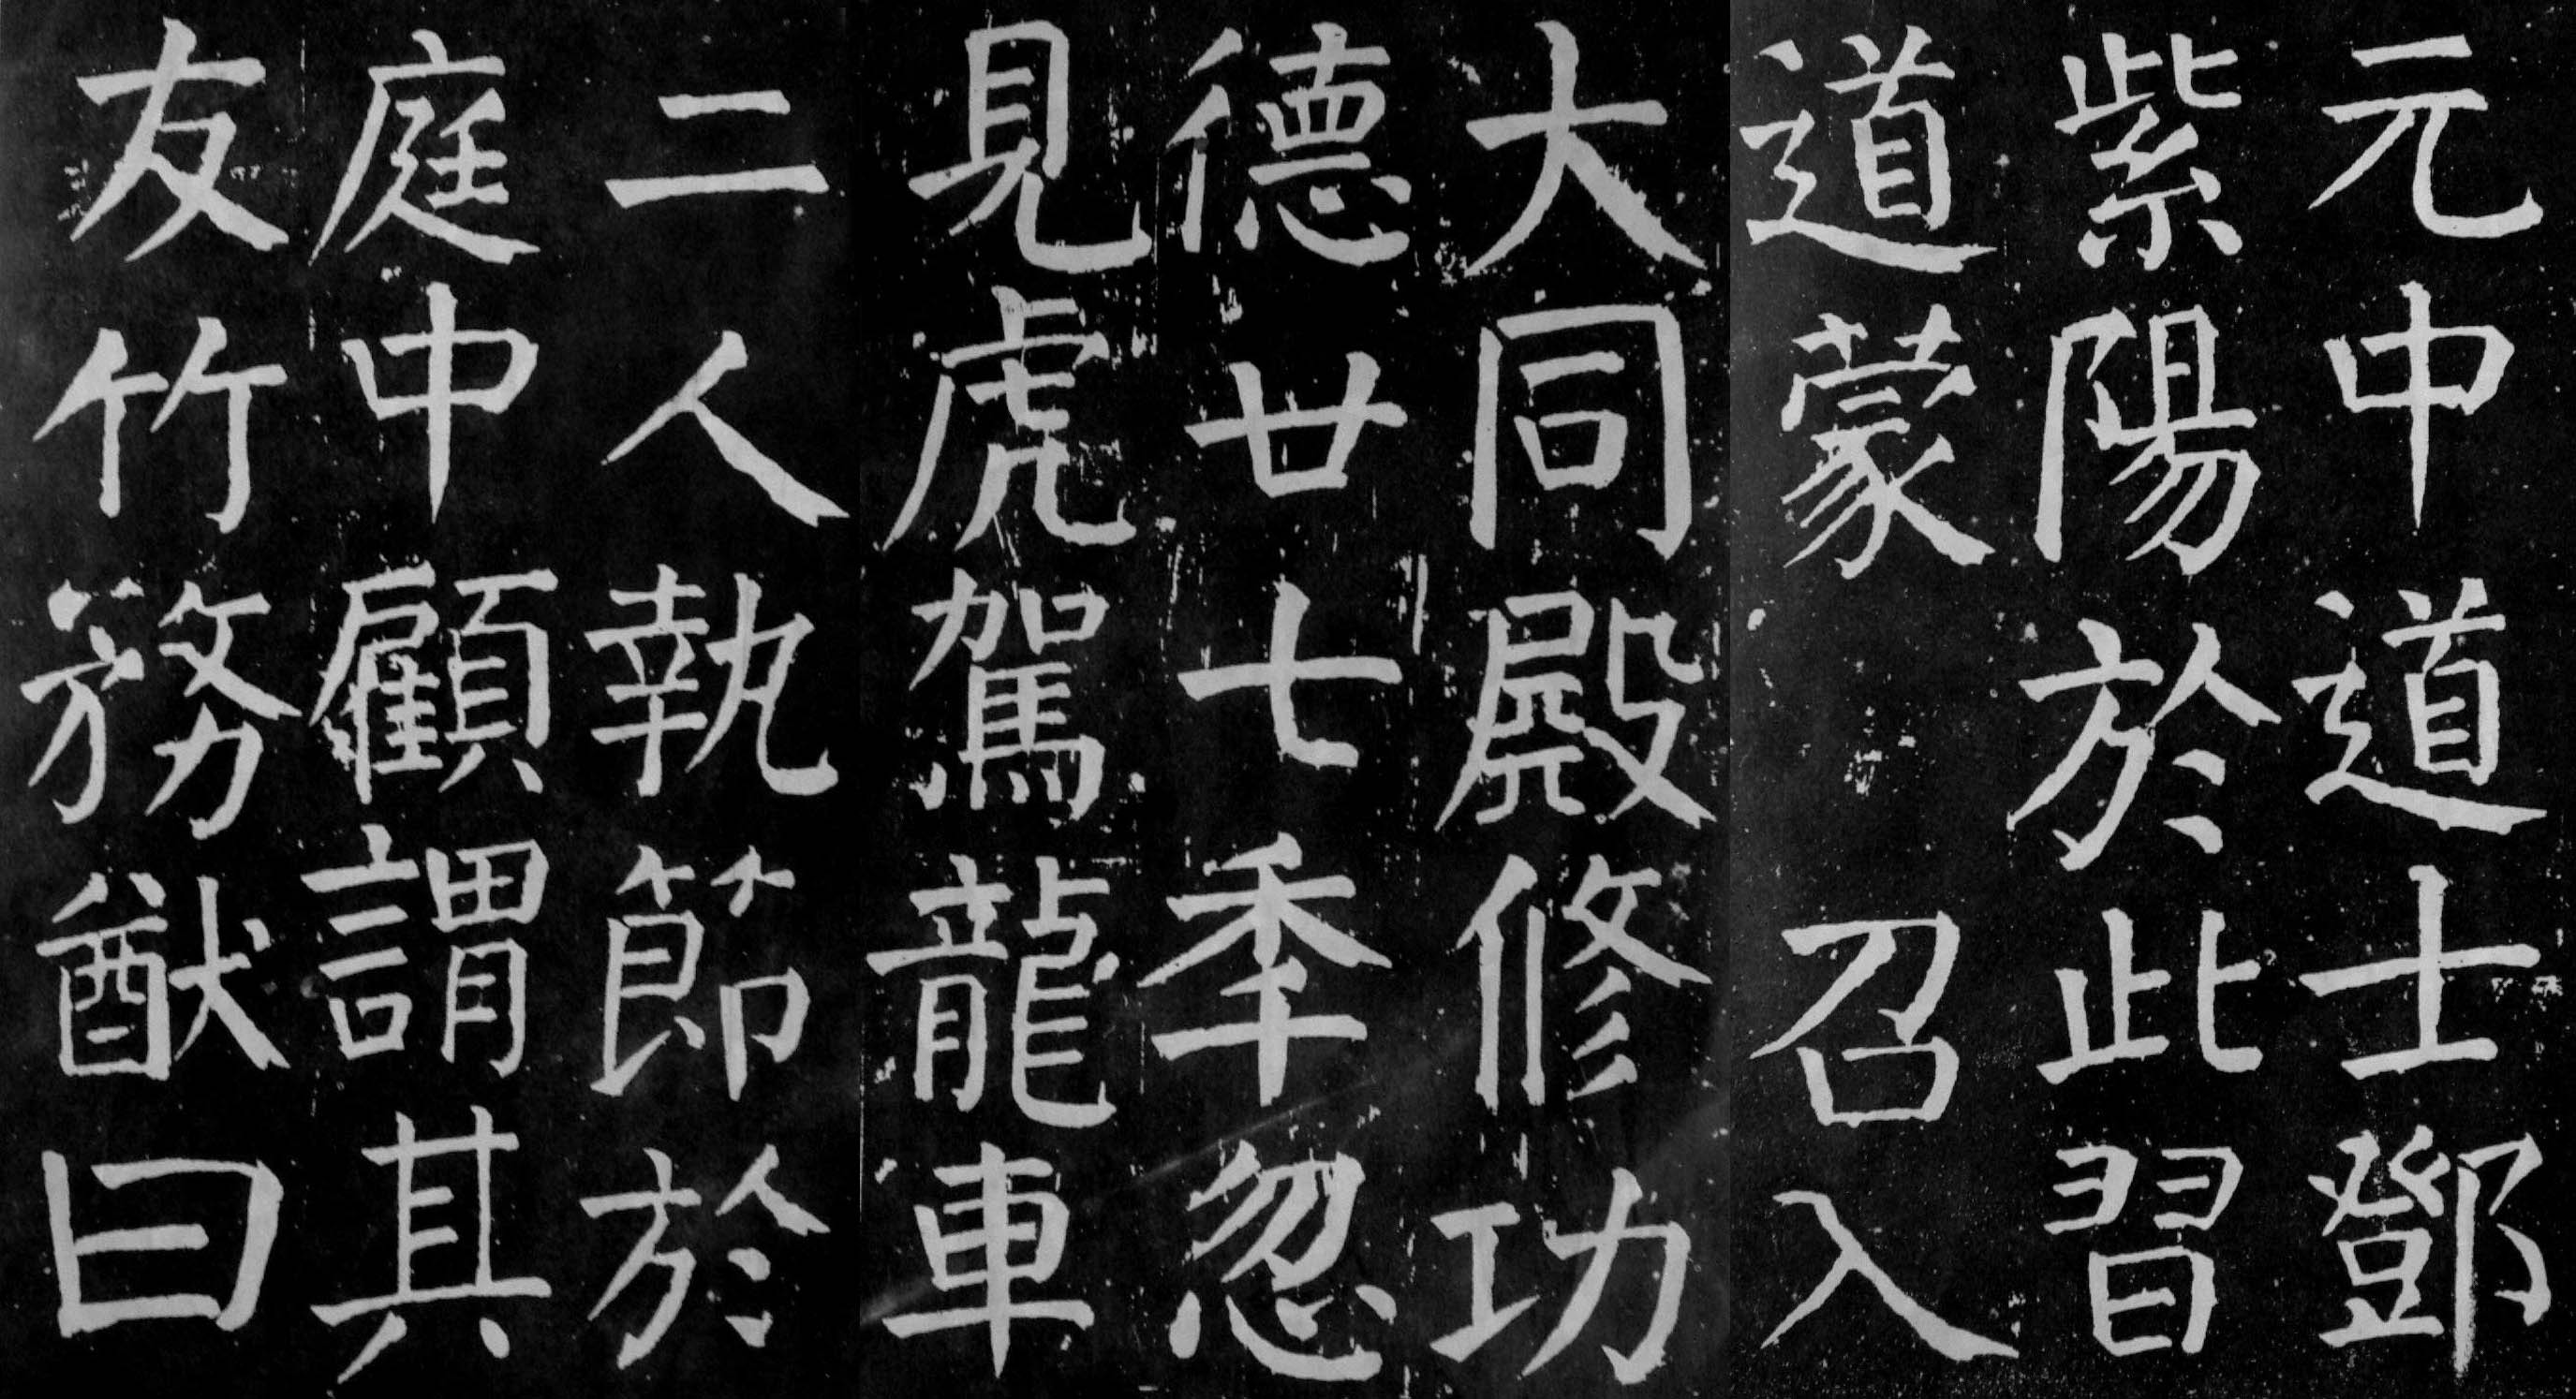 元中道士鄧
紫陽於此習
道蒙召入
大同殿修功
德廿七秊忽
見虎駕龍車
二人執節於
庭中顧謂其
友竹務猷曰